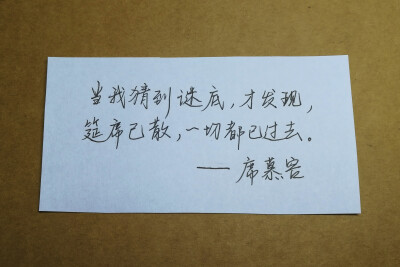 当我猜到谜底，才发现，
筵席已散，一切都已过去。
——席慕容